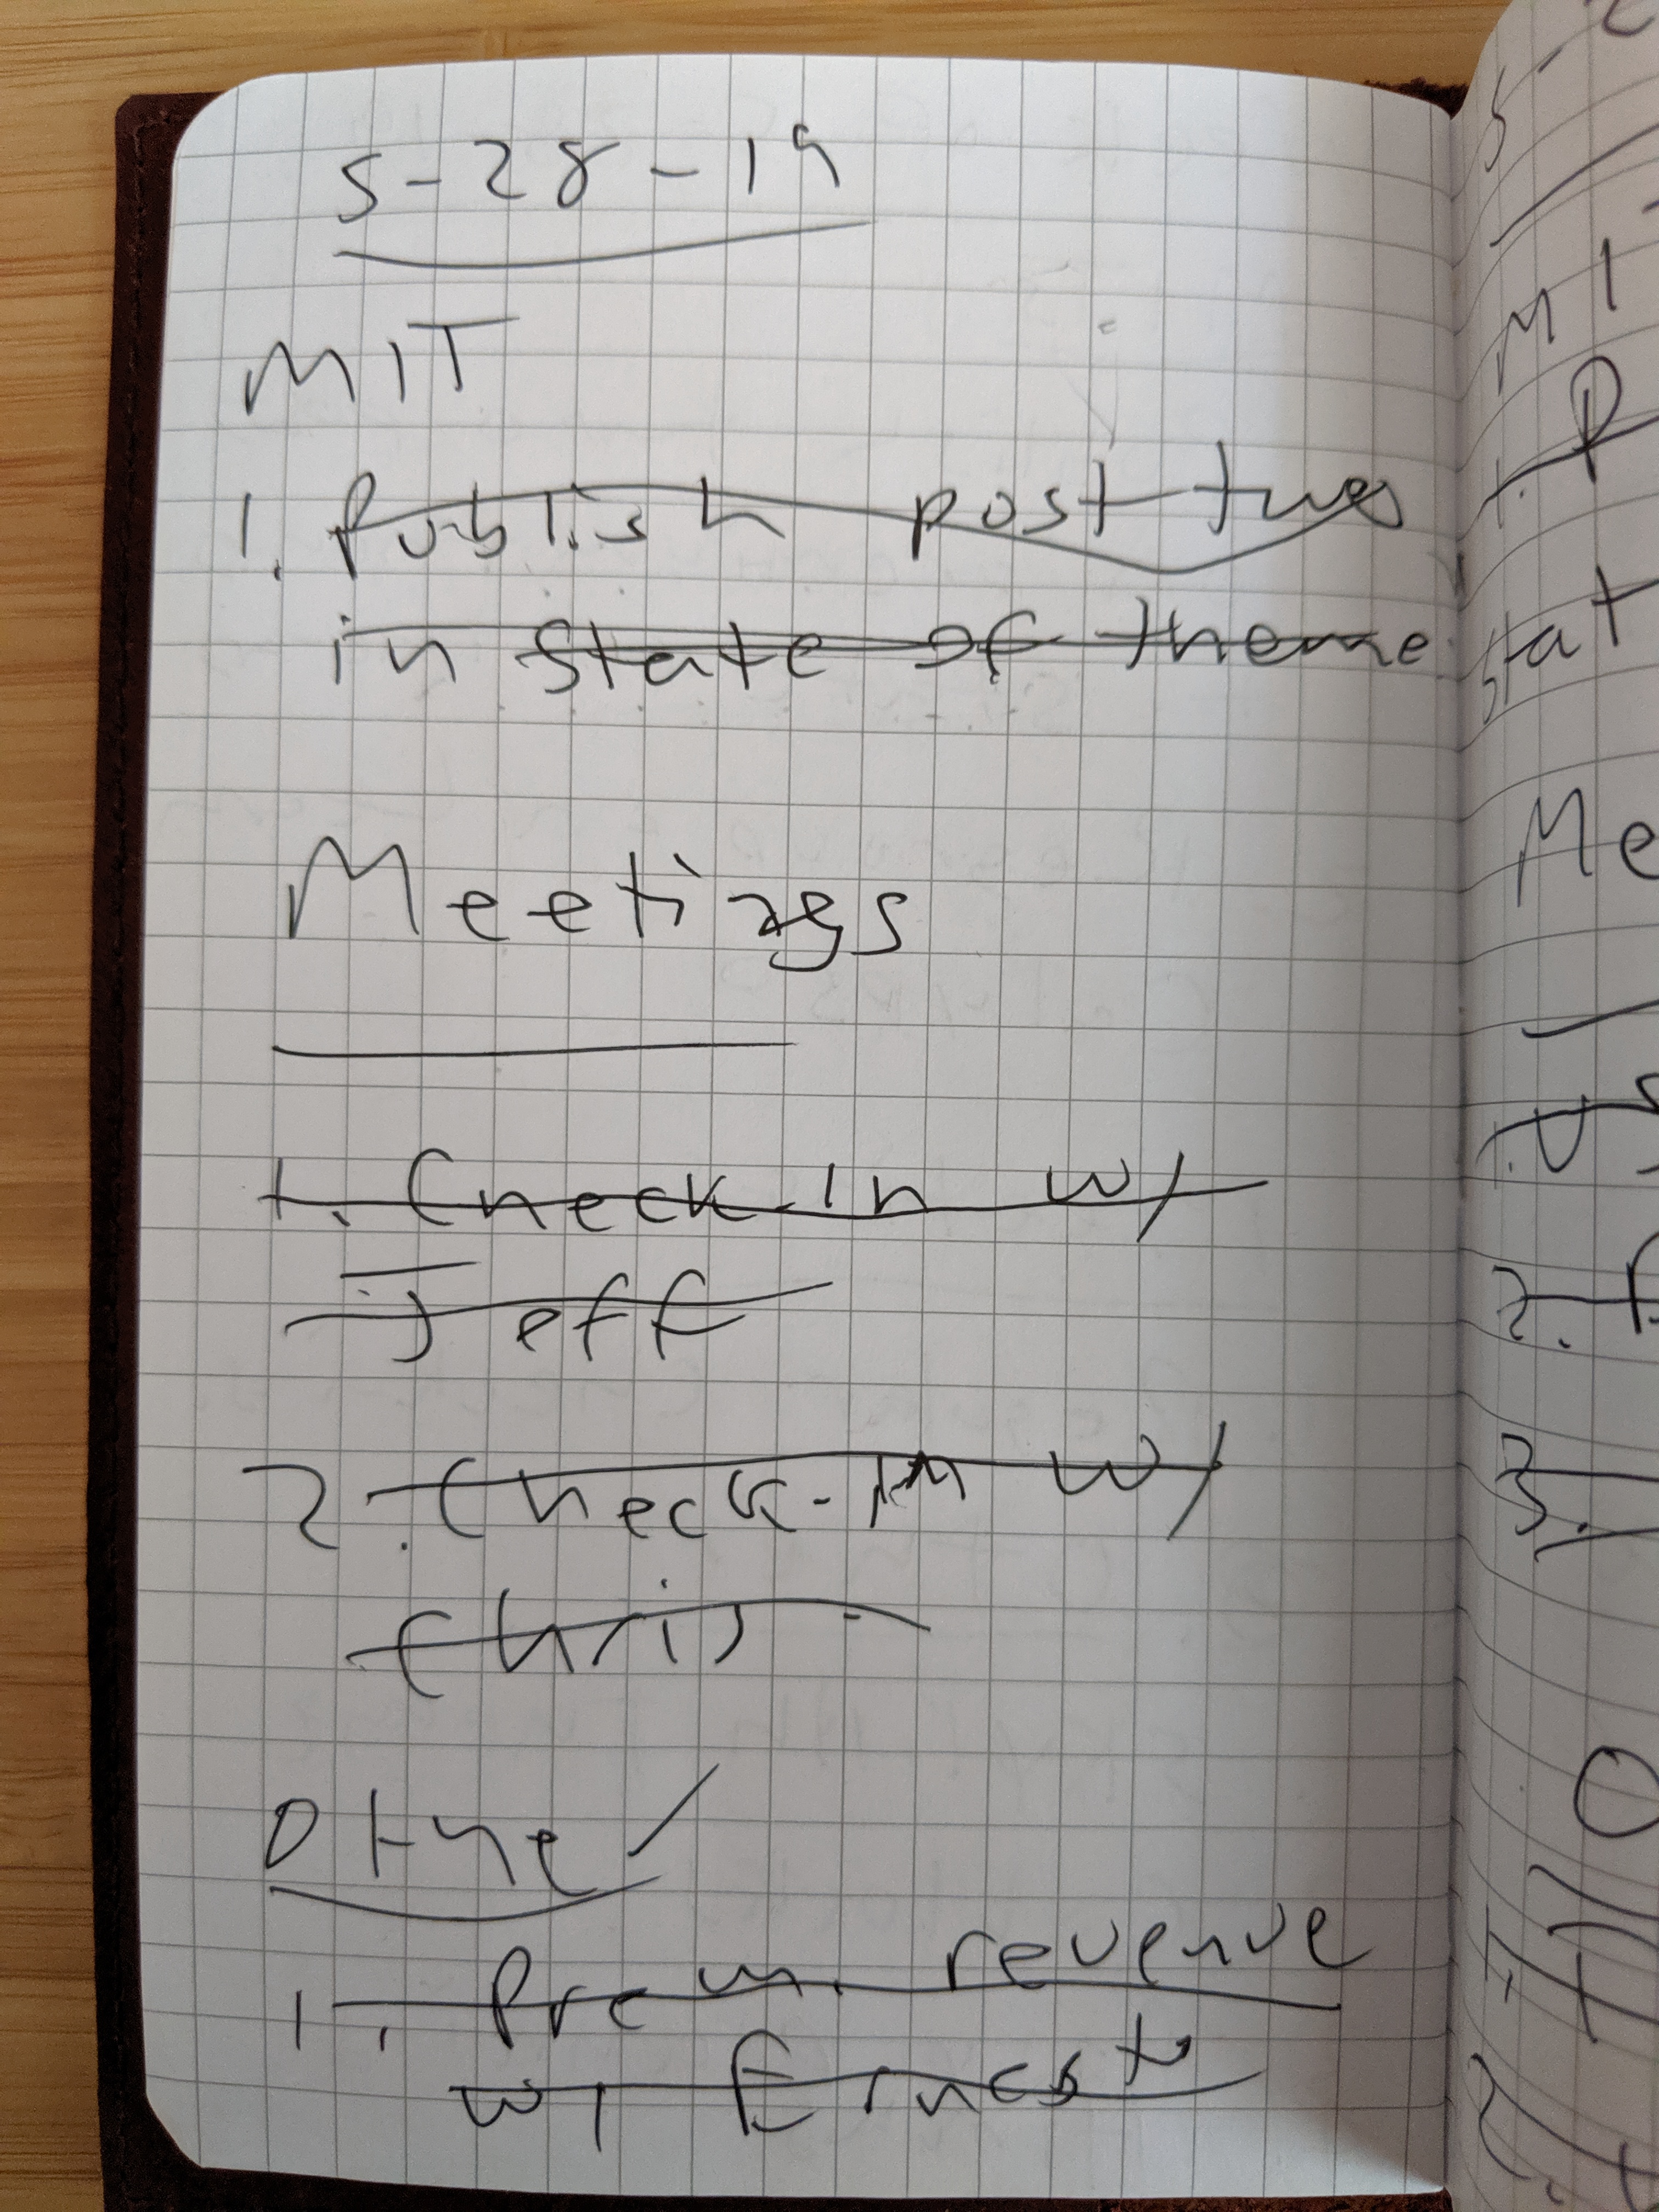 5-28-19
MIT
1. Publish post two
in state of theme
Meetings
1. Check-in w/
Jeff
2. Check-in w/
Chris
Other
1. Prem. revenue
w/ Ernesto
5
MI
1. P
stat
Me
1. U
2.
3.
O
1.
2.